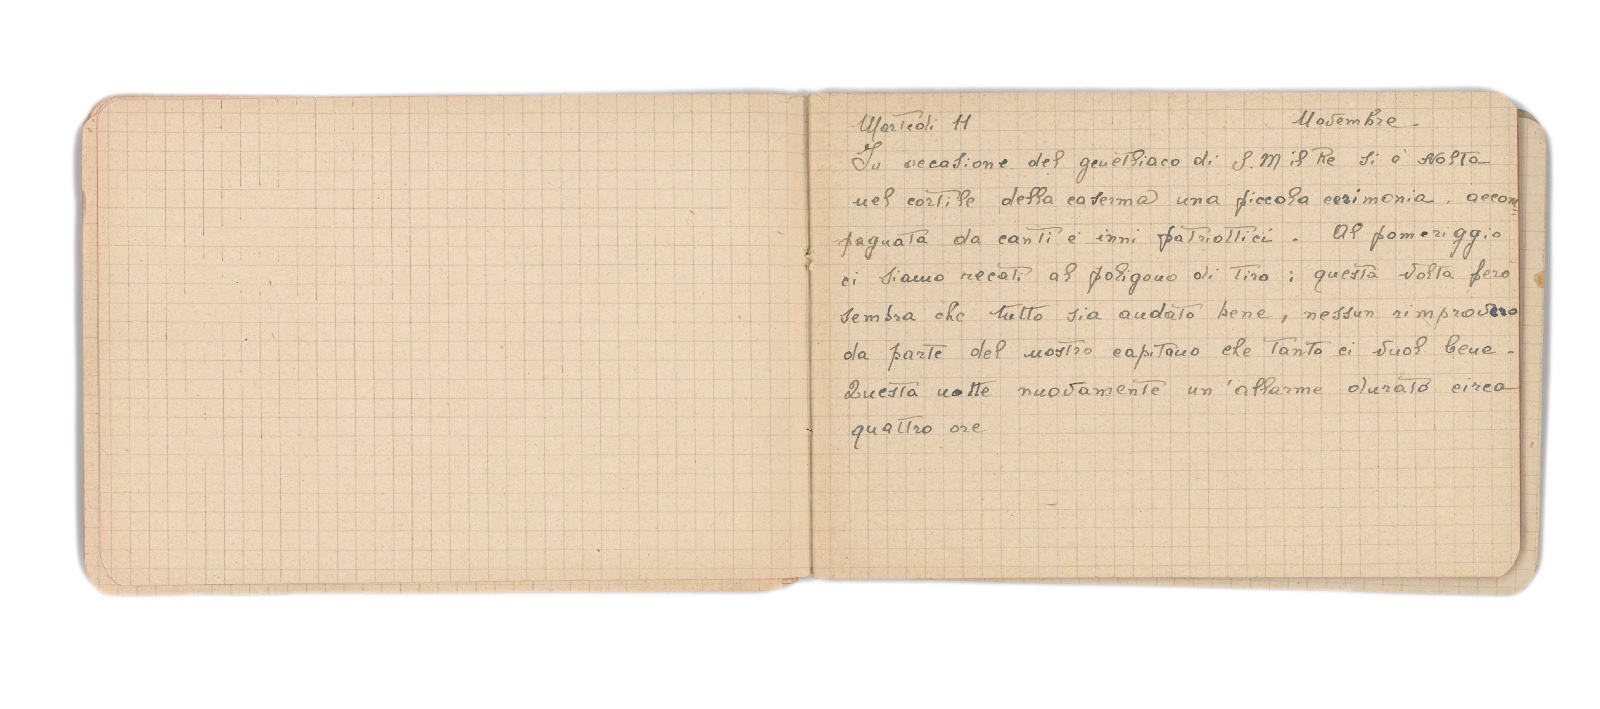 Martedi 11 Novembre -
In occasione del genetliaco di S. M il Re si è svolta
nel cortile della caserma una piccola cerimonia, accom
pagnata da canti e inni patriottici. Al pomeriggio
ci siamo recati al poligono di tiro; questa volta però
sembra che tutto sia andato bene, nessun rimprovero
da parte del nostro capitano che tanto ci vuol bene -
Questa notte nuovamente un'allarme durato circa
quattro ore